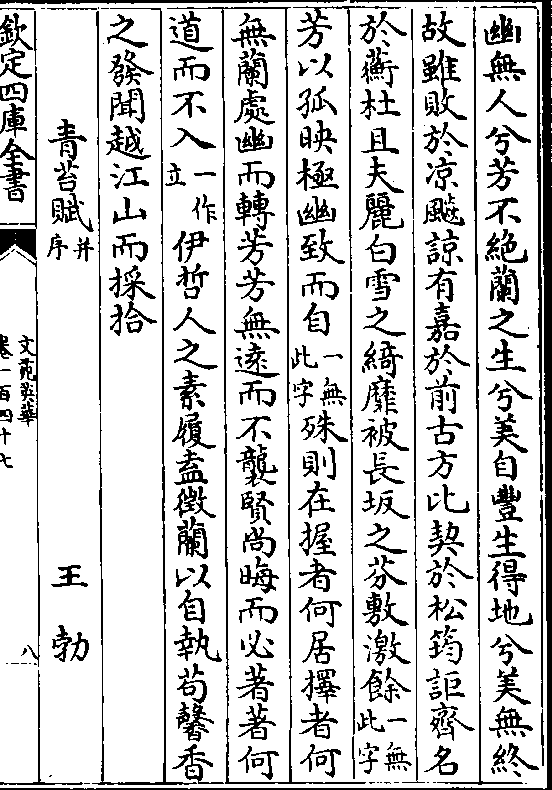 幽無人兮芳不絶蘭之生兮美自豐生得地兮美無終
故雖敗於凉飈諒有嘉於前古方比契於松筠詎齊名
於蘅杜且夫麗白雪之綺靡被長坂之芬敷激餘一無此字
芳以孤映極幽致而自一無此字殊則在握者何居擇者何
無蘭處幽而轉芳芳無遠而不襲賢尚晦而必著著何
道而不入一作立伊哲人之素履盍徴蘭以自執茍馨香
之發聞越江山而採拾
青苔賦并序　王勃
欽定四庫全書
文苑英華
卷一百四十七
八